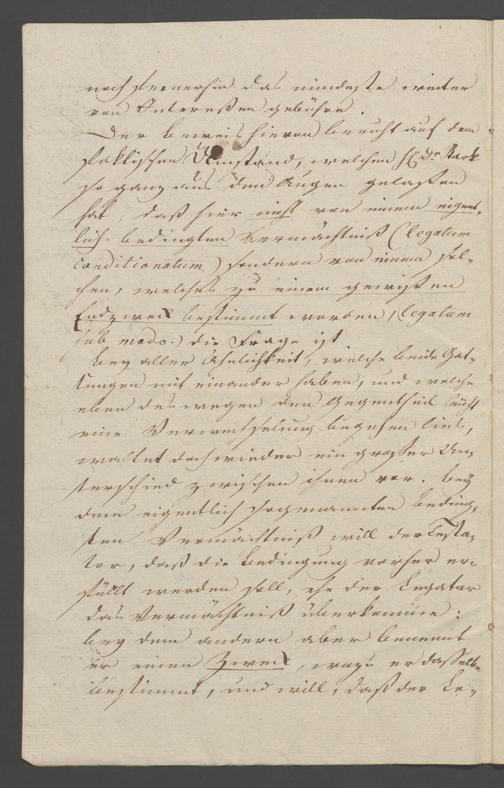 noch fernerhin das mindeste weiter
von Interessen gebühre.
Der Beweis hievon beruht auf dem
faktischen Umstand, welchen H. Dr.
so ganz aus den Augen gelassen
hat, daß hier nicht von einem eigent,
lich bedingten Vermächtniß (legatum
conditionatum) sondern von einem sol,
chen, welches zu einem gewissen
Endzweck bestimmt worden (legatum
sub modo:) die Frage ist.
Bey aller Ähnlichkeit, welche beide Gat,
tungen mit einander haben, und welche
eben deswegen den Gegentheil leicht
eine Verwechselung begehen ließ,
waltet doch wieder ein grosser Un,
terschied zwischen ihnen vor. Bey
dem eigentlich sogenannten beding,
ten Vermächtniß will der Testa,
tor, daß die Bedingung vorher er,
füllt werden soll, ehe der Legatar
das Vermächtniß überkomme:
bey dem andern aber benennt
er einen Zweck, wozu er dasselbe
bestimmt, und will, daß der Le,